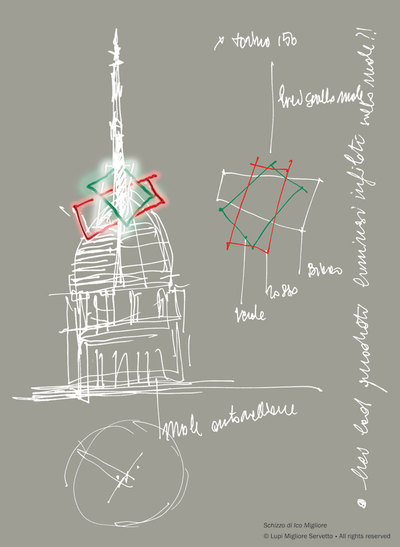 x torino 150
luci sulla mole
bianco
rosso
verde
mole antonelliana
tre led quadrati luminosi infilati nella mole?!
Schizzo di Ico Migliore
© Lupi Migliore Servetto • All rights reserved